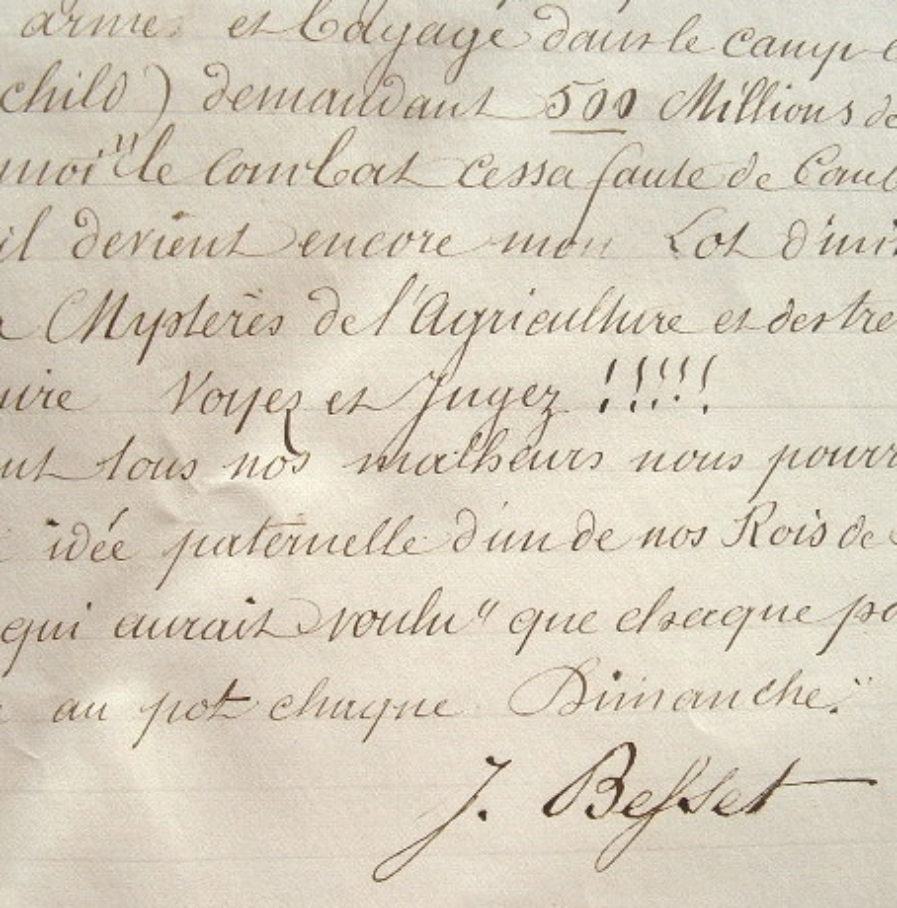 arme et bagage dans le camp
child) demandant 500 Millions de
moi" le combat cessa faute de Comb
il devient encore mon Lot d'init
Mystères de l'Agriculture et des tre
uire Voyez et Jugez !!!!!
nt tous nos malheurs nous pourr
idée paternelle d'un de nos Rois de
qui aurait voulu" que chaque pa
au pot chaque Dimanche."
J. Besset